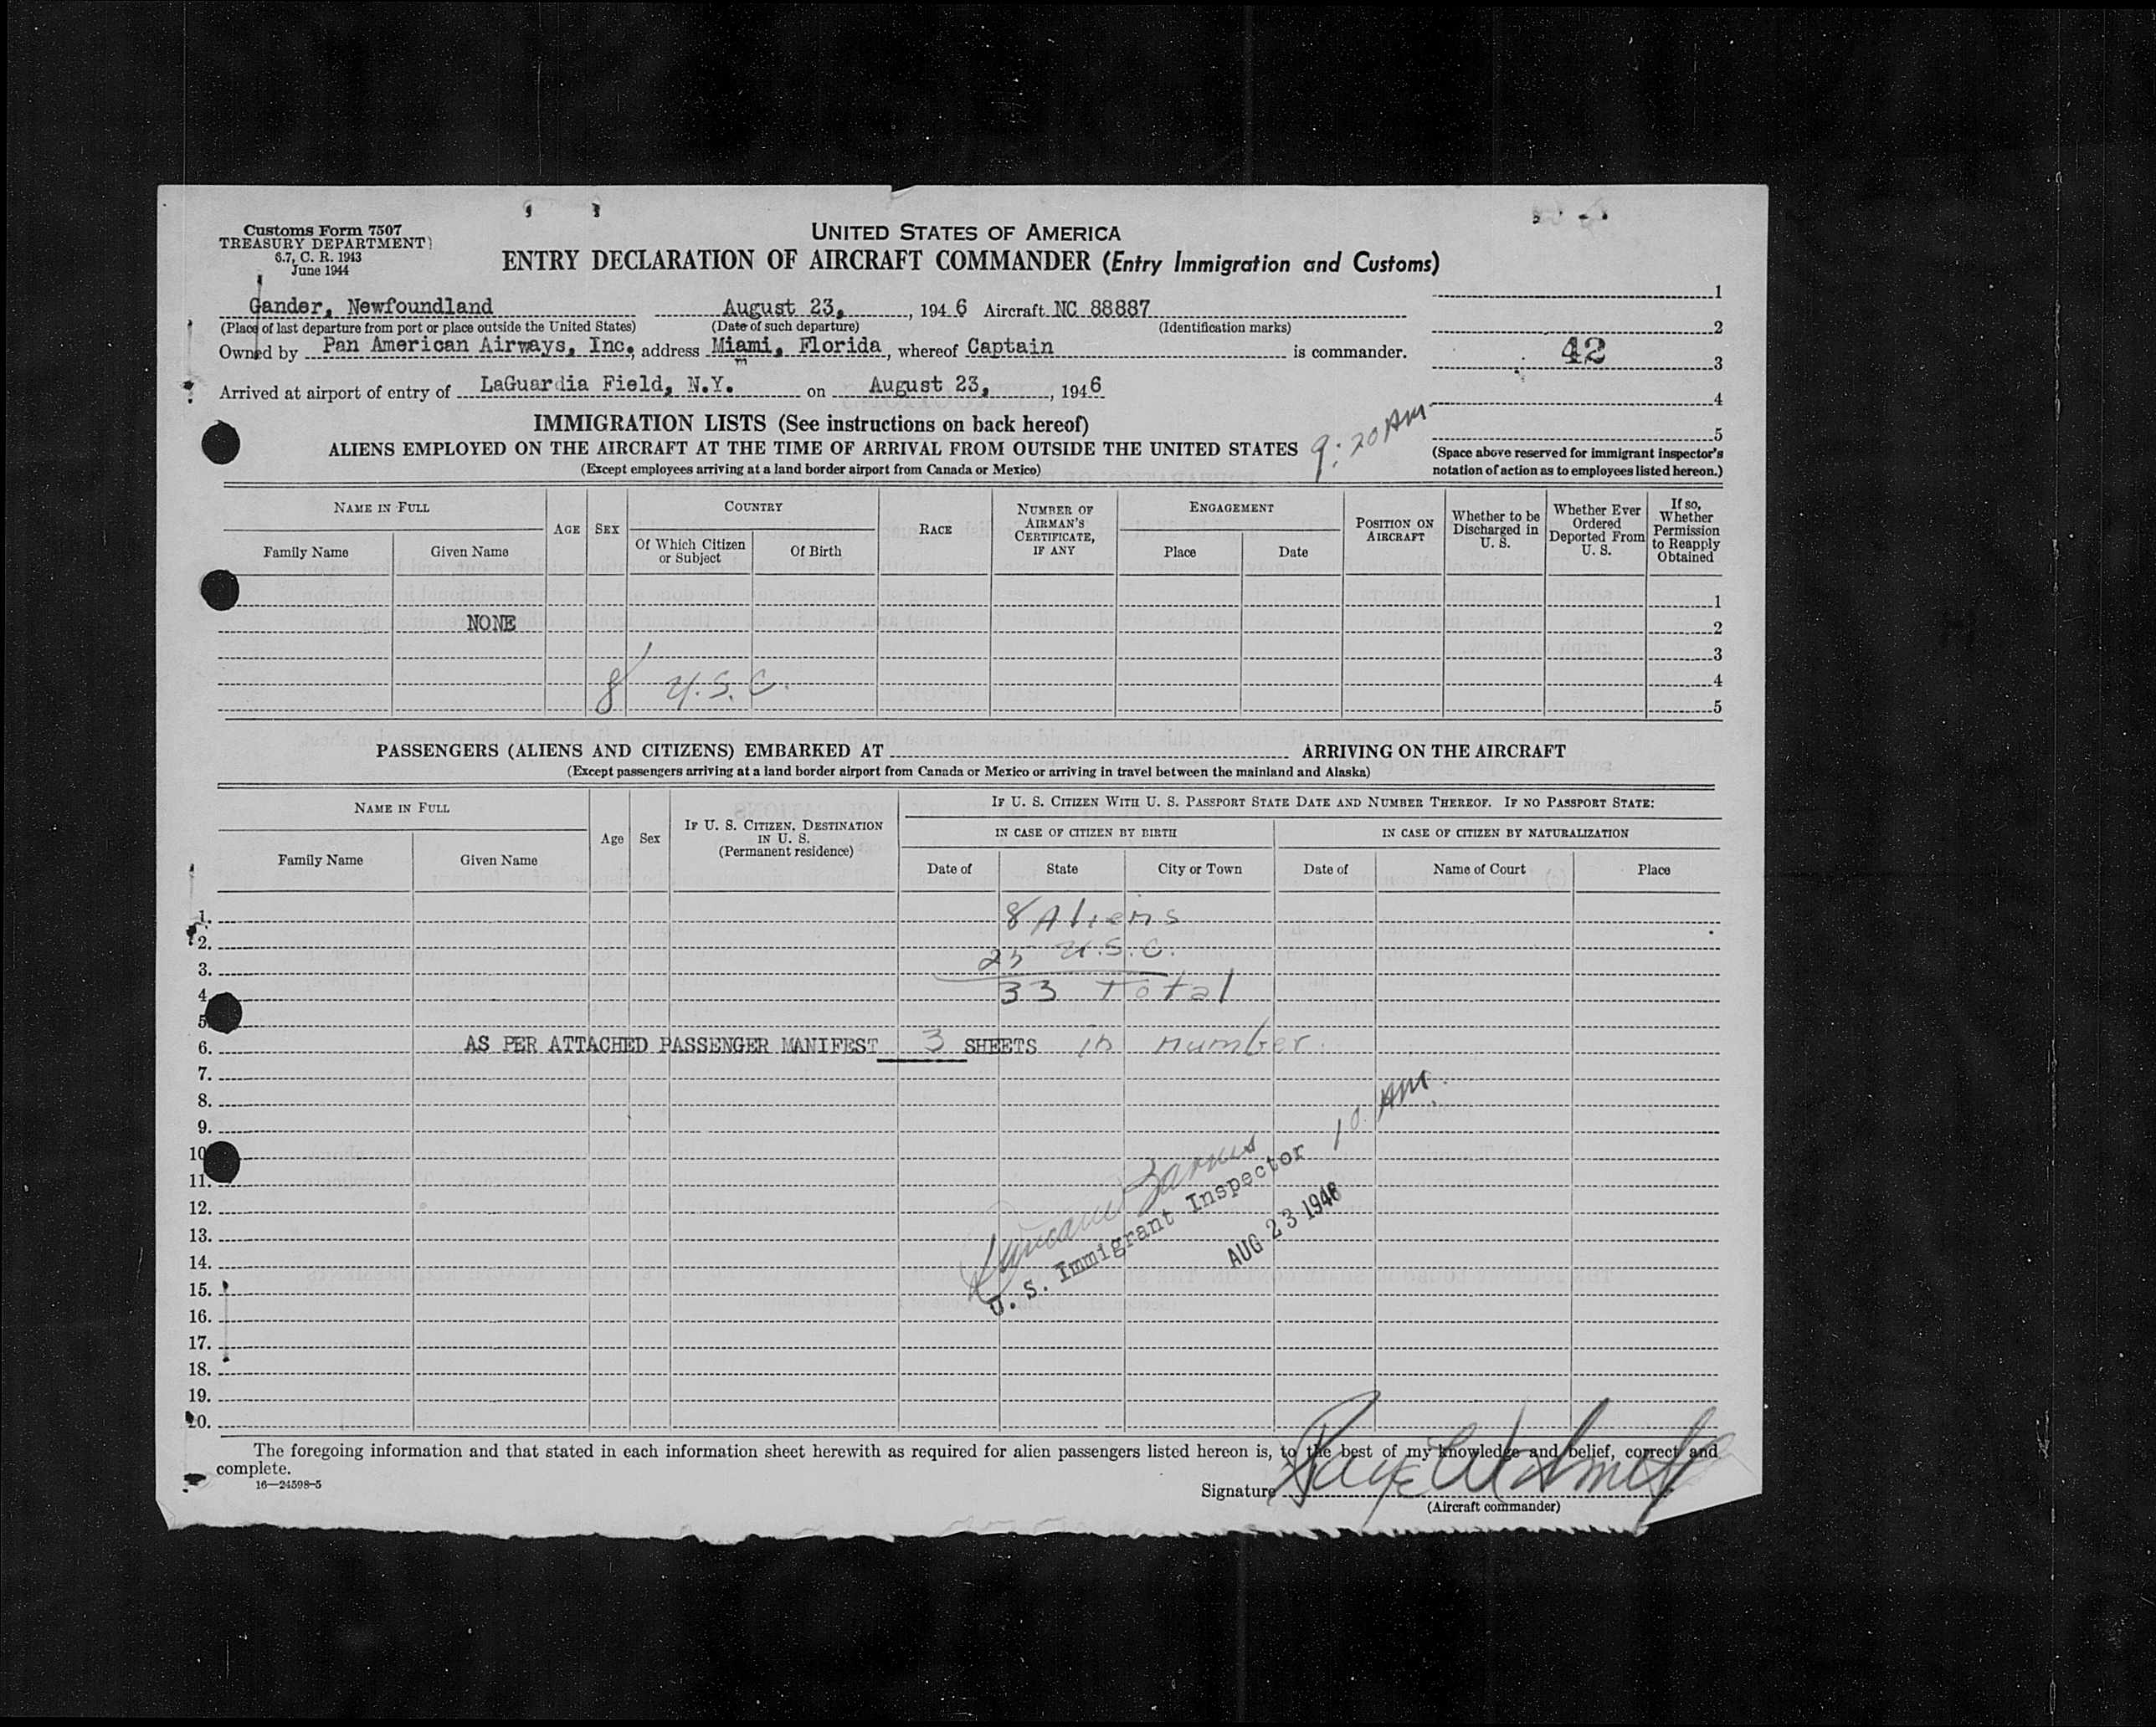 Customs Form 7507
TREASURY DEPARTMENT
6.7, C. R. 1943
June 1944
UNITED STATES OF AMERICA
ENTRY DECLARATION OF AIRCRAFT COMMANDER (Entry Immigration and Customs)
Gander, Newfoundland August 23, , 194 6 Aircraft NC 88887
(Place of last departure from port or place outside the United States) (Date of such departure) (Identification marks)
Owned by Pan American Airways, Inc. address Miami, Florida, whereof Captain is commander.
Arrived at airport of entry of LaGuardia Field, N.Y. on August 23, , 1946
1
2
42
3
4
5
(Space above reserved for immigrant inspector's
notation of action as to employees listed hereon.)
IMMIGRATION LISTS (See instructions on back hereof)
ALIENS EMPLOYED ON THE AIRCRAFT AT THE TIME OF ARRIVAL FROM OUTSIDE THE UNITED STATES 9:20 AM
(Except employees arriving at a land border airport from Canada or Mexico)
NAME IN FULL
Family Name Given Name
AGE SEX
COUNTRY
Of Which Citizen or Subject Of Birth
RACE
NUMBER OF AIRMAN'S CERTIFICATE, IF ANY
ENGAGEMENT
Place Date
POSITION ON AIRCRAFT
Whether to be Discharged in U. S.
Whether Ever Ordered Deported From U. S.
If so, Whether Permission to Reapply Obtained
1
NONE 2
3
8 U.S.C. 4
5
PASSENGERS (ALIENS AND CITIZENS) EMBARKED AT ARRIVING ON THE AIRCRAFT
(Except passengers arriving at a land border airport from Canada or Mexico or arriving in travel between the mainland and Alaska)
NAME IN FULL
Family Name Given Name
Age Sex
IF U. S. CITIZEN, DESTINATION IN U. S. (Permanent residence)
IF U. S. CITIZEN WITH U. S. PASSPORT STATE DATE AND NUMBER THEREOF. IF NO PASSPORT STATE:
IN CASE OF CITIZEN BY BIRTH IN CASE OF CITIZEN BY NATURALIZATION
Date of State City or Town Date of Name of Court Place
1. 8 Aliens
2. 25 U.S.C.
3.
4. 33 Total
5.
6. AS PER ATTACHED PASSENGER MANIFEST 3 SHEETS in number.
7.
8.
9.
10.
11.
12.
13.
14.
15.
16.
17.
18.
19.
20.
10 AM.
Barnes
U. S. Immigrant Inspector
AUG 23 1946
The foregoing information and that stated in each information sheet herewith as required for alien passengers listed hereon is, to the best of my knowledge and belief, correct and
complete.
16—24598-5
Signature
(Aircraft commander)